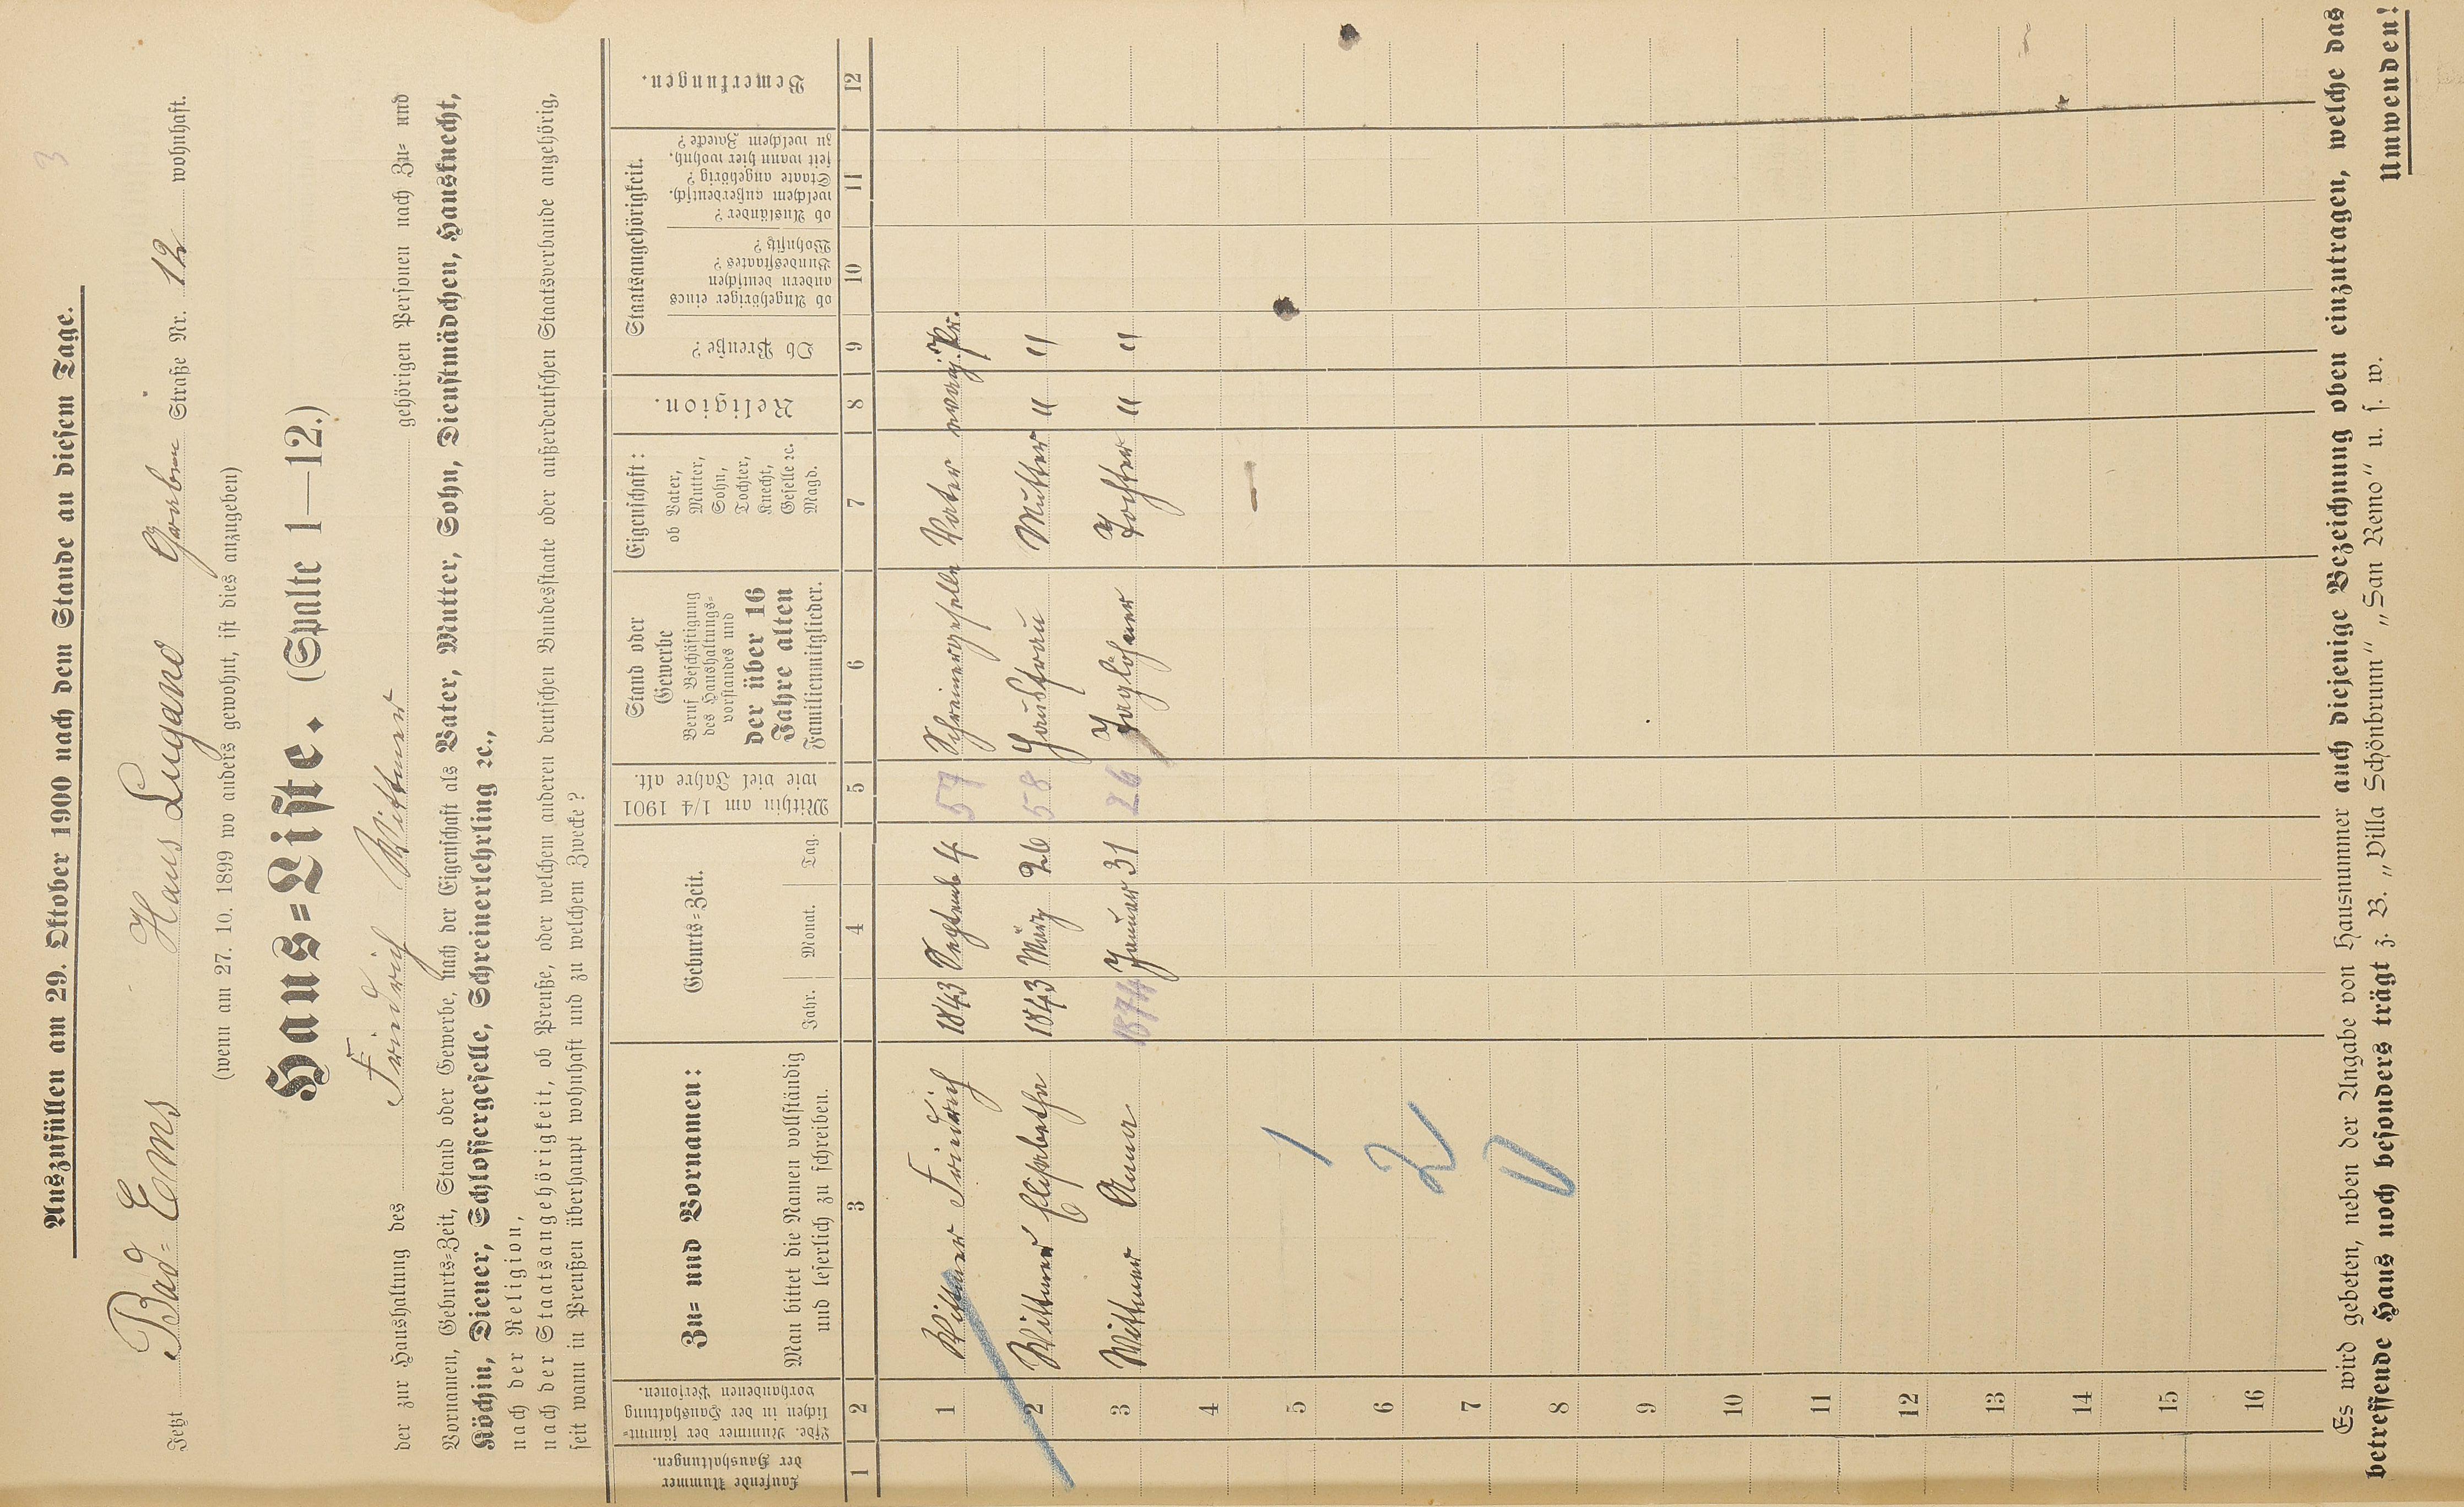 3
Auszufüllen am 29. Oktober 1900 nach dem Stande an diesem Tage.
Jetzt Bad-Ems Haus Lugano Graben Straße Nr. 12 wohnhaft.
(wenn am 27. 10. 1899 wo anders gewohnt, ist dies anzugeben)
Haus=Liste. (Spalte 1—12.)
der zur Haushaltung des Friedrich Wittmer gehörigen Personen nach Zu= und
Vornamen, Geburts=Zeit, Stand oder Gewerbe, nach der Eigenschaft als Vater, Mutter, Sohn, Dienstmädchen, Hausknecht,
Köchin, Diener, Schlossergeselle, Schreinerlehrling ec.,
nach der Religion,
nach der Staatsangehörigkeit, ob Preuße, oder welchem anderen deutschen Bundesstaate oder außerdeutschen Staatsverbande angehörig,
seit wann in Preußen überhaupt wohnhaft und zu welchem Zwecke?
Laufende Nummer
der Haushaltungen.
Lfde. Nummer der sämmt=
lichen in der Haushaltung
vorhandenen Personen.
Zu= und Vornamen:
Man bittet die Namen vollständig
und leserlich zu schreiben.
Geburts=Zeit.
Jahr. Monat. Tag.
Mithin am 1/4 1901
wie viel Jahre alt.
Stand oder
Gewerbe
Beruf Beschäftigung
des Haushaltungs=
vorstandes und
der über 16
Jahre alten
Familienmitglieder.
Eigenschaft:
ob Vater,
Mutter,
Sohn,
Tochter,
Knecht,
Geselle ec.
Magd.
Religion.
Staatsangehörigkeit.
Ob Preuße?
ob Angehöriger eines
andern deutschen
Bundesstaates?
Wohnsitz?
ob Ausländer?
welchem außerdeutsch.
Staate angehörig?
seit wann hier wohnh.
zu welchem Zwecke?
Bemerkungen.
1 2 3 4 5 6 7 8 9 10 11 12
1 Wittmer Friedrich 1843 Septemb 4 57 Schreinergeselle Vater evang. Pr.
2 Wittmer Elisabethe 1843 März 26 58 Hausfrau Mutter " "
3 Wittmer Anna 1874 Januar 31 26 Taglöhner Tochter " "
4
5 1
6 2
7 0
8
9
10
11
12
13
14
15
16
Es wird gebeten, neben der Angabe von Hausnummer auch diejenige Bezeichnung oben einzutragen, welche das
betreffende Haus noch besonders trägt z. B. „Villa Schönbrunn“ „San Remo“ u. s. w.
Umwenden!